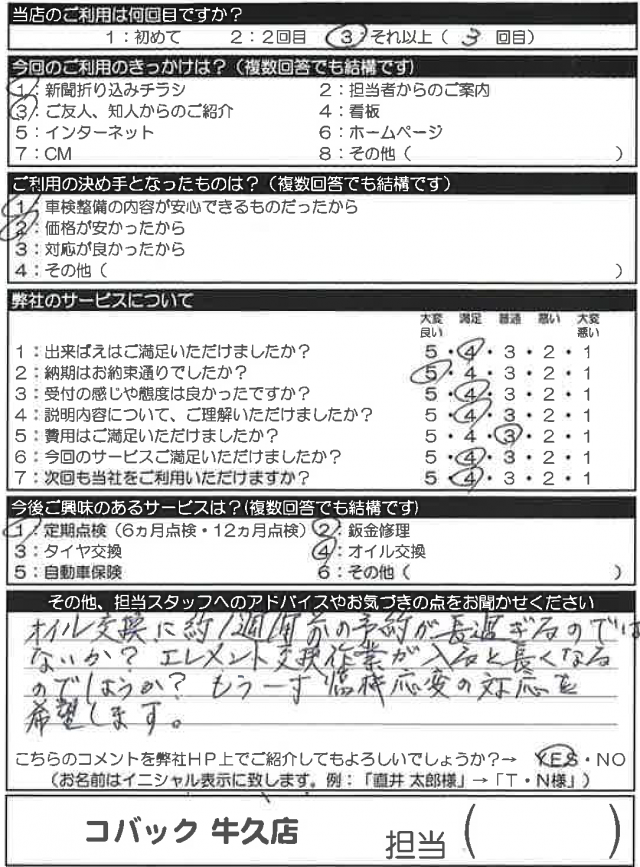 当店のご利用は何回目ですか？
1：初めて 2：2回目 3：それ以上（ 3 回目）
今回のご利用のきっかけは？（複数回答でも結構です）
1：新聞折り込みチラシ 2：担当者からのご案内
3：ご友人、知人からのご紹介 4：看板
5：インターネット 6：ホームページ
7：CM 8：その他（ ）
ご利用の決め手となったものは？（複数回答でも結構です）
1：車検整備の内容が安心できるものだったから
2：価格が安かったから
3：対応が良かったから
4：その他（ ）
弊社のサービスについて
大変良い 満足 普通 悪い 大変悪い
1：出来ばえはご満足いただけましたか？ 5・4・3・2・1
2：納期はお約束通りでしたか？ 5・4・3・2・1
3：受付の感じや態度は良かったですか？ 5・4・3・2・1
4：説明内容について、ご理解いただけましたか？ 5・4・3・2・1
5：費用はご満足いただけましたか？ 5・4・3・2・1
6：今回のサービスご満足いただけましたか？ 5・4・3・2・1
7：次回も当社をご利用いただけますか？ 5・4・3・2・1
今後ご興味のあるサービスは？(複数回答でも結構です)
1：定期点検（6ヵ月点検・12ヵ月点検） 2：鈑金修理
3：タイヤ交換 4：オイル交換
5：自動車保険 6：その他（ ）
その他、担当スタッフへのアドバイスやお気づきの点をお聞かせください
オイル交換に約1週間前の予約が長過ぎるのでは
ないか？ エレメント交換作業が入ると長くなる
のでしょうか？ もう一寸臨機応変の対応を
希望します。
こちらのコメントを弊社HP上でご紹介してもよろしいでしょうか？→ YES・NO
（お名前はイニシャル表示に致します。例：「直井 太郎様」→「T・N様」）
コバック 牛久店 担当（ ）